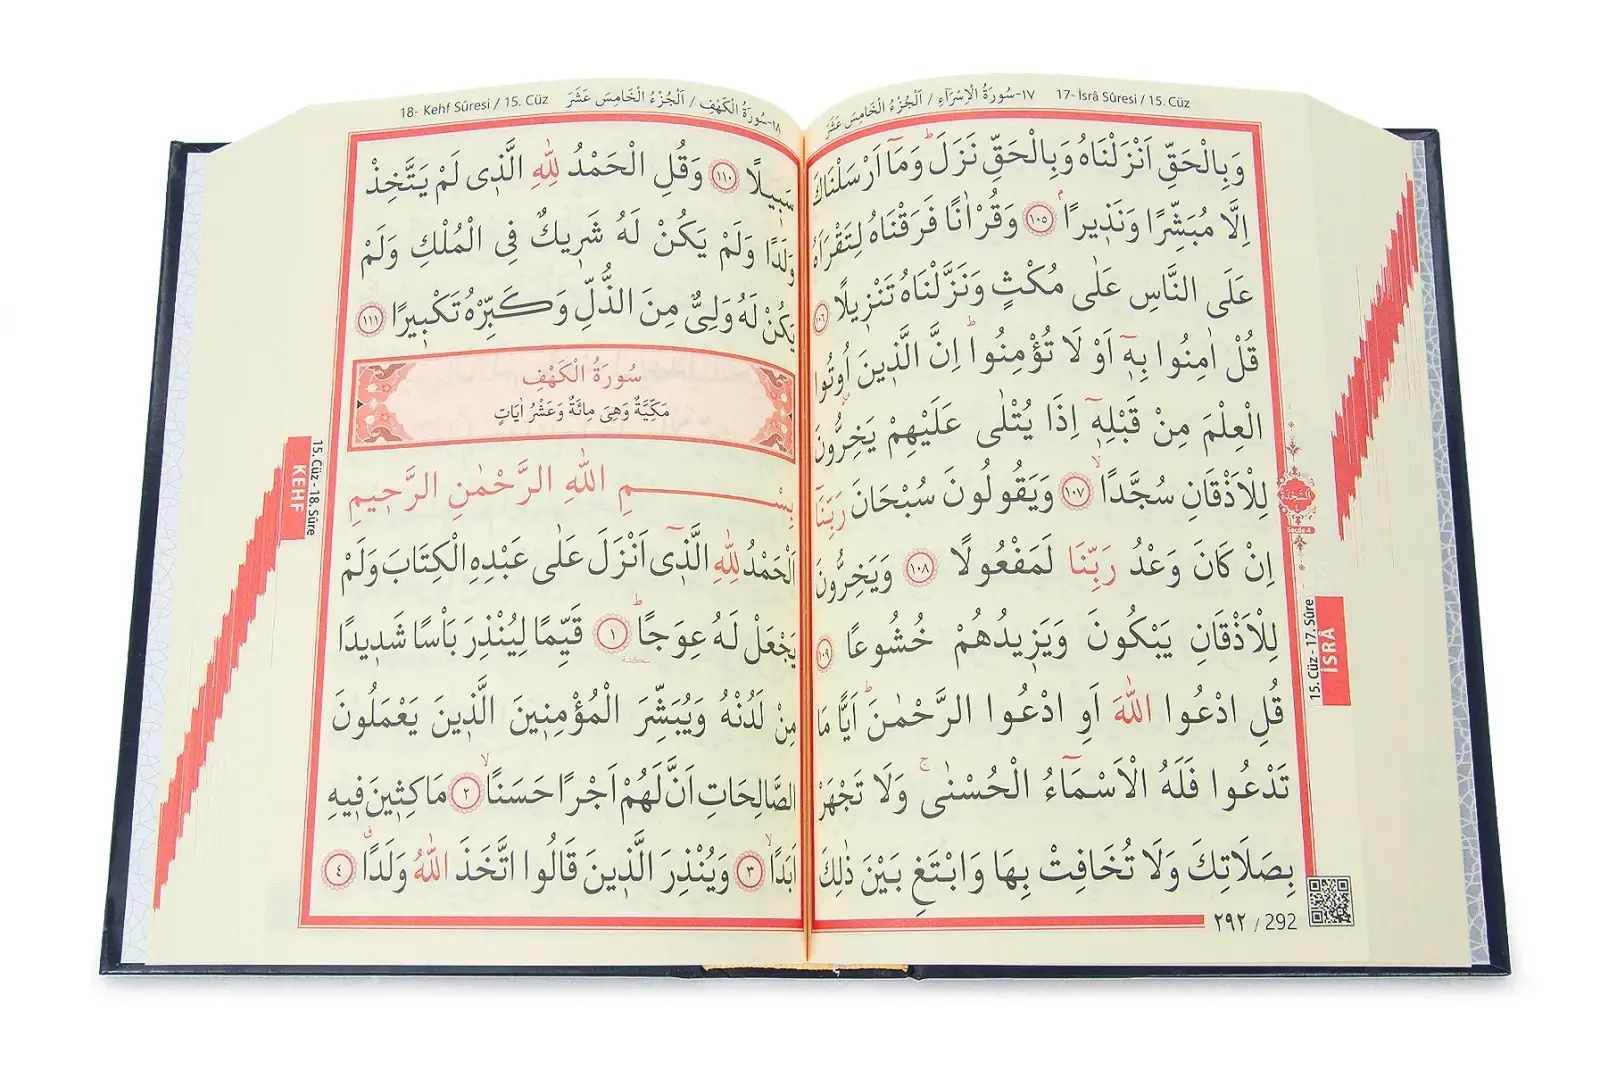 ١٧-سُورَةُ الْاِسْرَٓاءِ / اَلْجُزْءُ الْخَامِسَ عَشَرَ 17- İsrâ Sûresi / 15. Cüz
وَبِالْحَقِّ اَنْزَلْنَاهُ وَبِالْحَقِّ نَزَلَۜ وَمَٓا اَرْسَلْنَاكَ
اِلَّا مُبَشِّرًا وَنَذ۪يرًاۢ ﴿١٠٥﴾ وَقُرْاٰنًا فَرَقْنَاهُ لِتَقْرَاَهُ
عَلَى النَّاسِ عَلٰى مُكْثٍ وَنَزَّلْنَاهُ تَنْز۪يلًا ﴿١٠٦﴾
قُلْ اٰمِنُوا بِه۪ٓ اَوْ لَا تُؤْمِنُواۜ اِنَّ الَّذ۪ينَ اُو۫تُوا
الْعِلْمَ مِنْ قَبْلِه۪ٓ اِذَا يُتْلٰى عَلَيْهِمْ يَخِرُّونَ
لِلْاَذْقَانِ سُجَّدًاۙ ﴿١٠٧﴾ وَيَقُولُونَ سُبْحَانَ رَبِّنَٓا
اِنْ كَانَ وَعْدُ رَبِّنَا لَمَفْعُولًا ﴿١٠٨﴾ وَيَخِرُّونَ
لِلْاَذْقَانِ يَبْكُونَ وَيَز۪يدُهُمْ خُشُوعًا ﴿١٠٩﴾
قُلِ ادْعُوا اللّٰهَ اَوِ ادْعُوا الرَّحْمٰنَۜ اَيًّا مَا
تَدْعُوا فَلَهُ الْاَسْمَٓاءُ الْحُسْنٰىۚ وَلَا تَجْهَرْ
بِصَلَاتِكَ وَلَا تُخَافِتْ بِهَا وَابْتَغِ بَيْنَ ذٰلِكَ
٢٩٢ / 292
السَّجْدَة
٤
Secde 4
15. Cüz - 17. Sûre
İSRÂ
١٨-سُورَةُ الْكَهْفِ / اَلْجُزْءُ الْخَامِسَ عَشَرَ 18- Kehf Sûresi / 15. Cüz
سَب۪يلًا ﴿١١٠﴾ وَقُلِ الْحَمْدُ لِلّٰهِ الَّذ۪ى لَمْ يَتَّخِذْ
وَلَدًا وَلَمْ يَكُنْ لَهُ شَر۪يكٌ فِى الْمُلْكِ وَلَمْ
يَكُنْ لَهُ وَلِىٌّ مِنَ الذُّلِّ وَكَبِّرْهُ تَكْب۪يرًا ﴿١١١﴾
سُورَةُ الْكَهْفِ
مَكِّيَّةٌ وَهِىَ مِائَةٌ وَعَشْرُ اٰيَاتٍ
بِسْــــمِ اللّٰهِ الرَّحْمٰنِ الرَّح۪يمِ
اَلْحَمْدُ لِلّٰهِ الَّذ۪ٓى اَنْزَلَ عَلٰى عَبْدِهِ الْكِتَابَ وَلَمْ
يَجْعَلْ لَهُ عِوَجًاۜ ﴿١﴾ قَيِّمًا لِيُنْذِرَ بَاْسًا شَد۪يدًا
سكته
مِنْ لَدُنْهُ وَيُبَشِّرَ الْمُؤْمِن۪ينَ الَّذ۪ينَ يَعْمَلُونَ
الصَّالِحَاتِ اَنَّ لَهُمْ اَجْرًا حَسَنًاۙ ﴿٢﴾ مَاكِث۪ينَ ف۪يهِ
اَبَدًاۙ ﴿٣﴾ وَيُنْذِرَ الَّذ۪ينَ قَالُوا اتَّخَذَ اللّٰهُ وَلَدًاۗ ﴿٤﴾
15. Cüz - 18. Sûre
KEHF